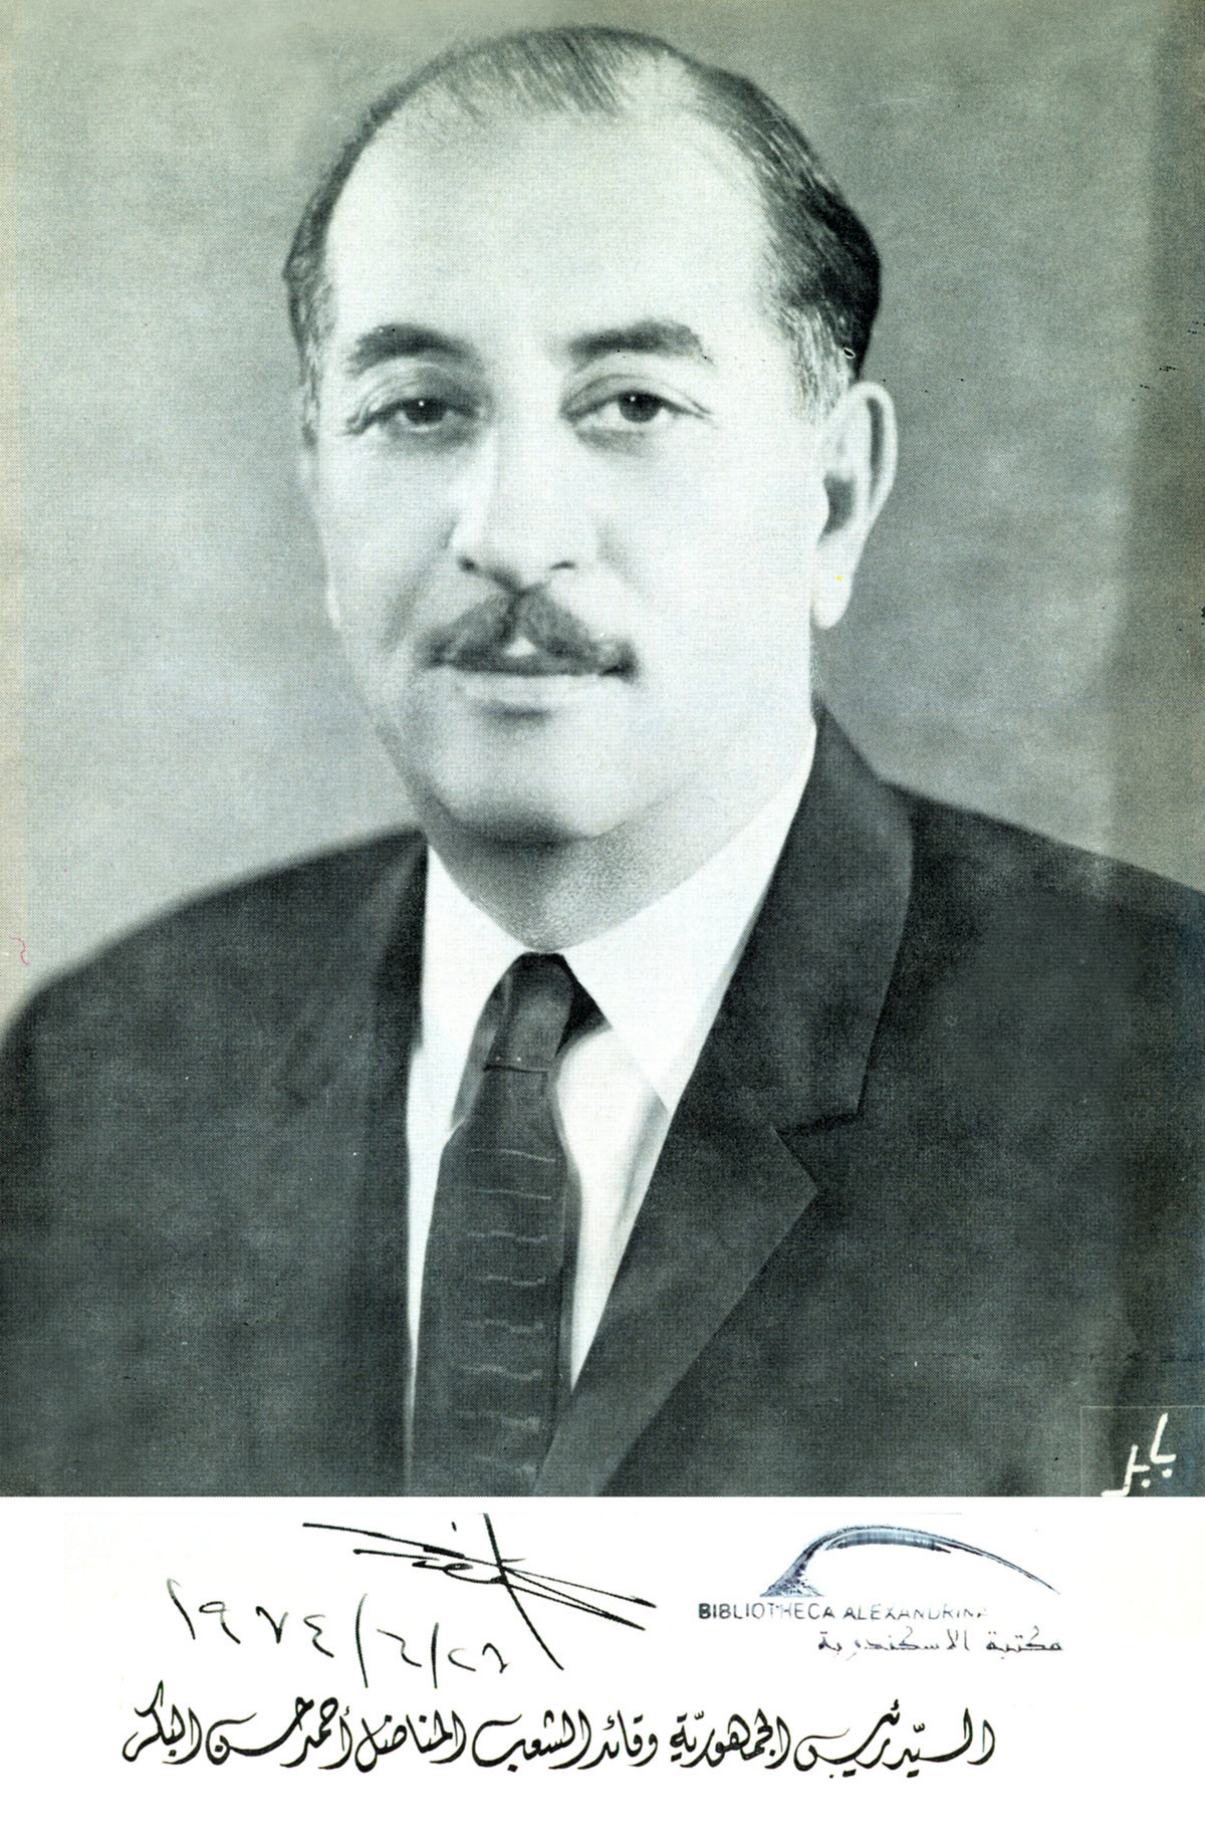 بابل
BIBLIOTHECA ALEXANDRINA
مكتبة الاسكندرية
السيد رئيس الجمهورية وقائد الشعب المناضل أحمد حسن البكر